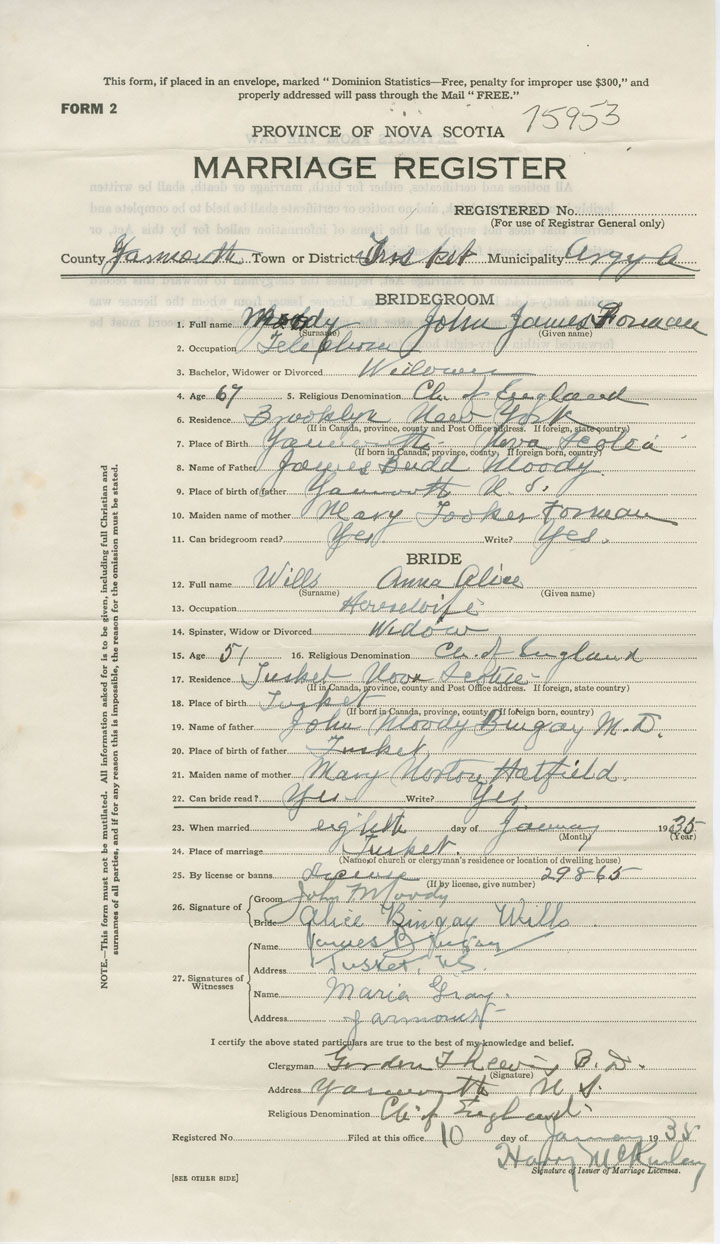 This form, if placed in an envelope, marked "Dominion Statistics—Free, penalty for improper use $300," and
properly addressed will pass through the Mail "FREE."
FORM 2
15953
PROVINCE OF NOVA SCOTIA
MARRIAGE REGISTER
REGISTERED No.
(For use of Registrar General only)
County Yarmouth Town or District Tusket Municipality Argyle
BRIDEGROOM
1. Full name Moody John James Forman
(Surname) (Given name)
2. Occupation Telephone
3. Bachelor, Widower or Divorced Widower
4. Age 67 5. Religious Denomination Ch. of England
6. Residence Brooklyn New York
(If in Canada, province, county and Post Office address. If foreign, state country)
7. Place of Birth Yarmouth Nova Scotia
(If born in Canada, province, county. If foreign born, country)
8. Name of Father James Budd Moody
9. Place of birth of father Yarmouth N. S.
10. Maiden name of mother Mary Tooker Forman
11. Can bridegroom read? Yes Write? Yes.
BRIDE
12. Full name Wills Anna Alice
(Surname) (Given name)
13. Occupation Housewife
14. Spinster, Widow or Divorced Widow
15. Age 51 16. Religious Denomination Ch. of England
17. Residence Tusket Nova Scotia
(If in Canada, province, county and Post Office address. If foreign, state country)
18. Place of birth Tusket
(If born in Canada, province, county. If foreign born, country)
19. Name of father John Moody Bingay M.D.
20. Place of birth of father Tusket.
21. Maiden name of mother Mary Norton Hatfield.
22. Can bride read? Yes. Write? Yes
23. When married eighth day of January 1935
(Month) (Year)
24. Place of marriage Tusket.
(Name of church or clergyman's residence or location of dwelling house)
25. By license or banns License 29865
(If by license, give number)
26. Signature of
Groom John F Moody
Bride Alice Bingay Wills
27. Signatures of
Witnesses
Name James Bingay
Address Tusket, N.S.
Name Maria Gray.
Address Yarmouth
I certify the above stated particulars are true to the best of my knowledge and belief.
Clergyman Gordon T Lewis B. D.
(Signature)
Address Yarmouth N. S.
Religious Denomination Ch. of England
Registered No. Filed at this office 10 day of January 1935
Harry McKinley
Signature of Issuer of Marriage Licenses.
[SEE OTHER SIDE]
NOTE.—This form must not be mutilated. All information asked for is to be given, including full Christian and
surnames of all parties, and if for any reason this is impossible, the reason for the omission must be stated.